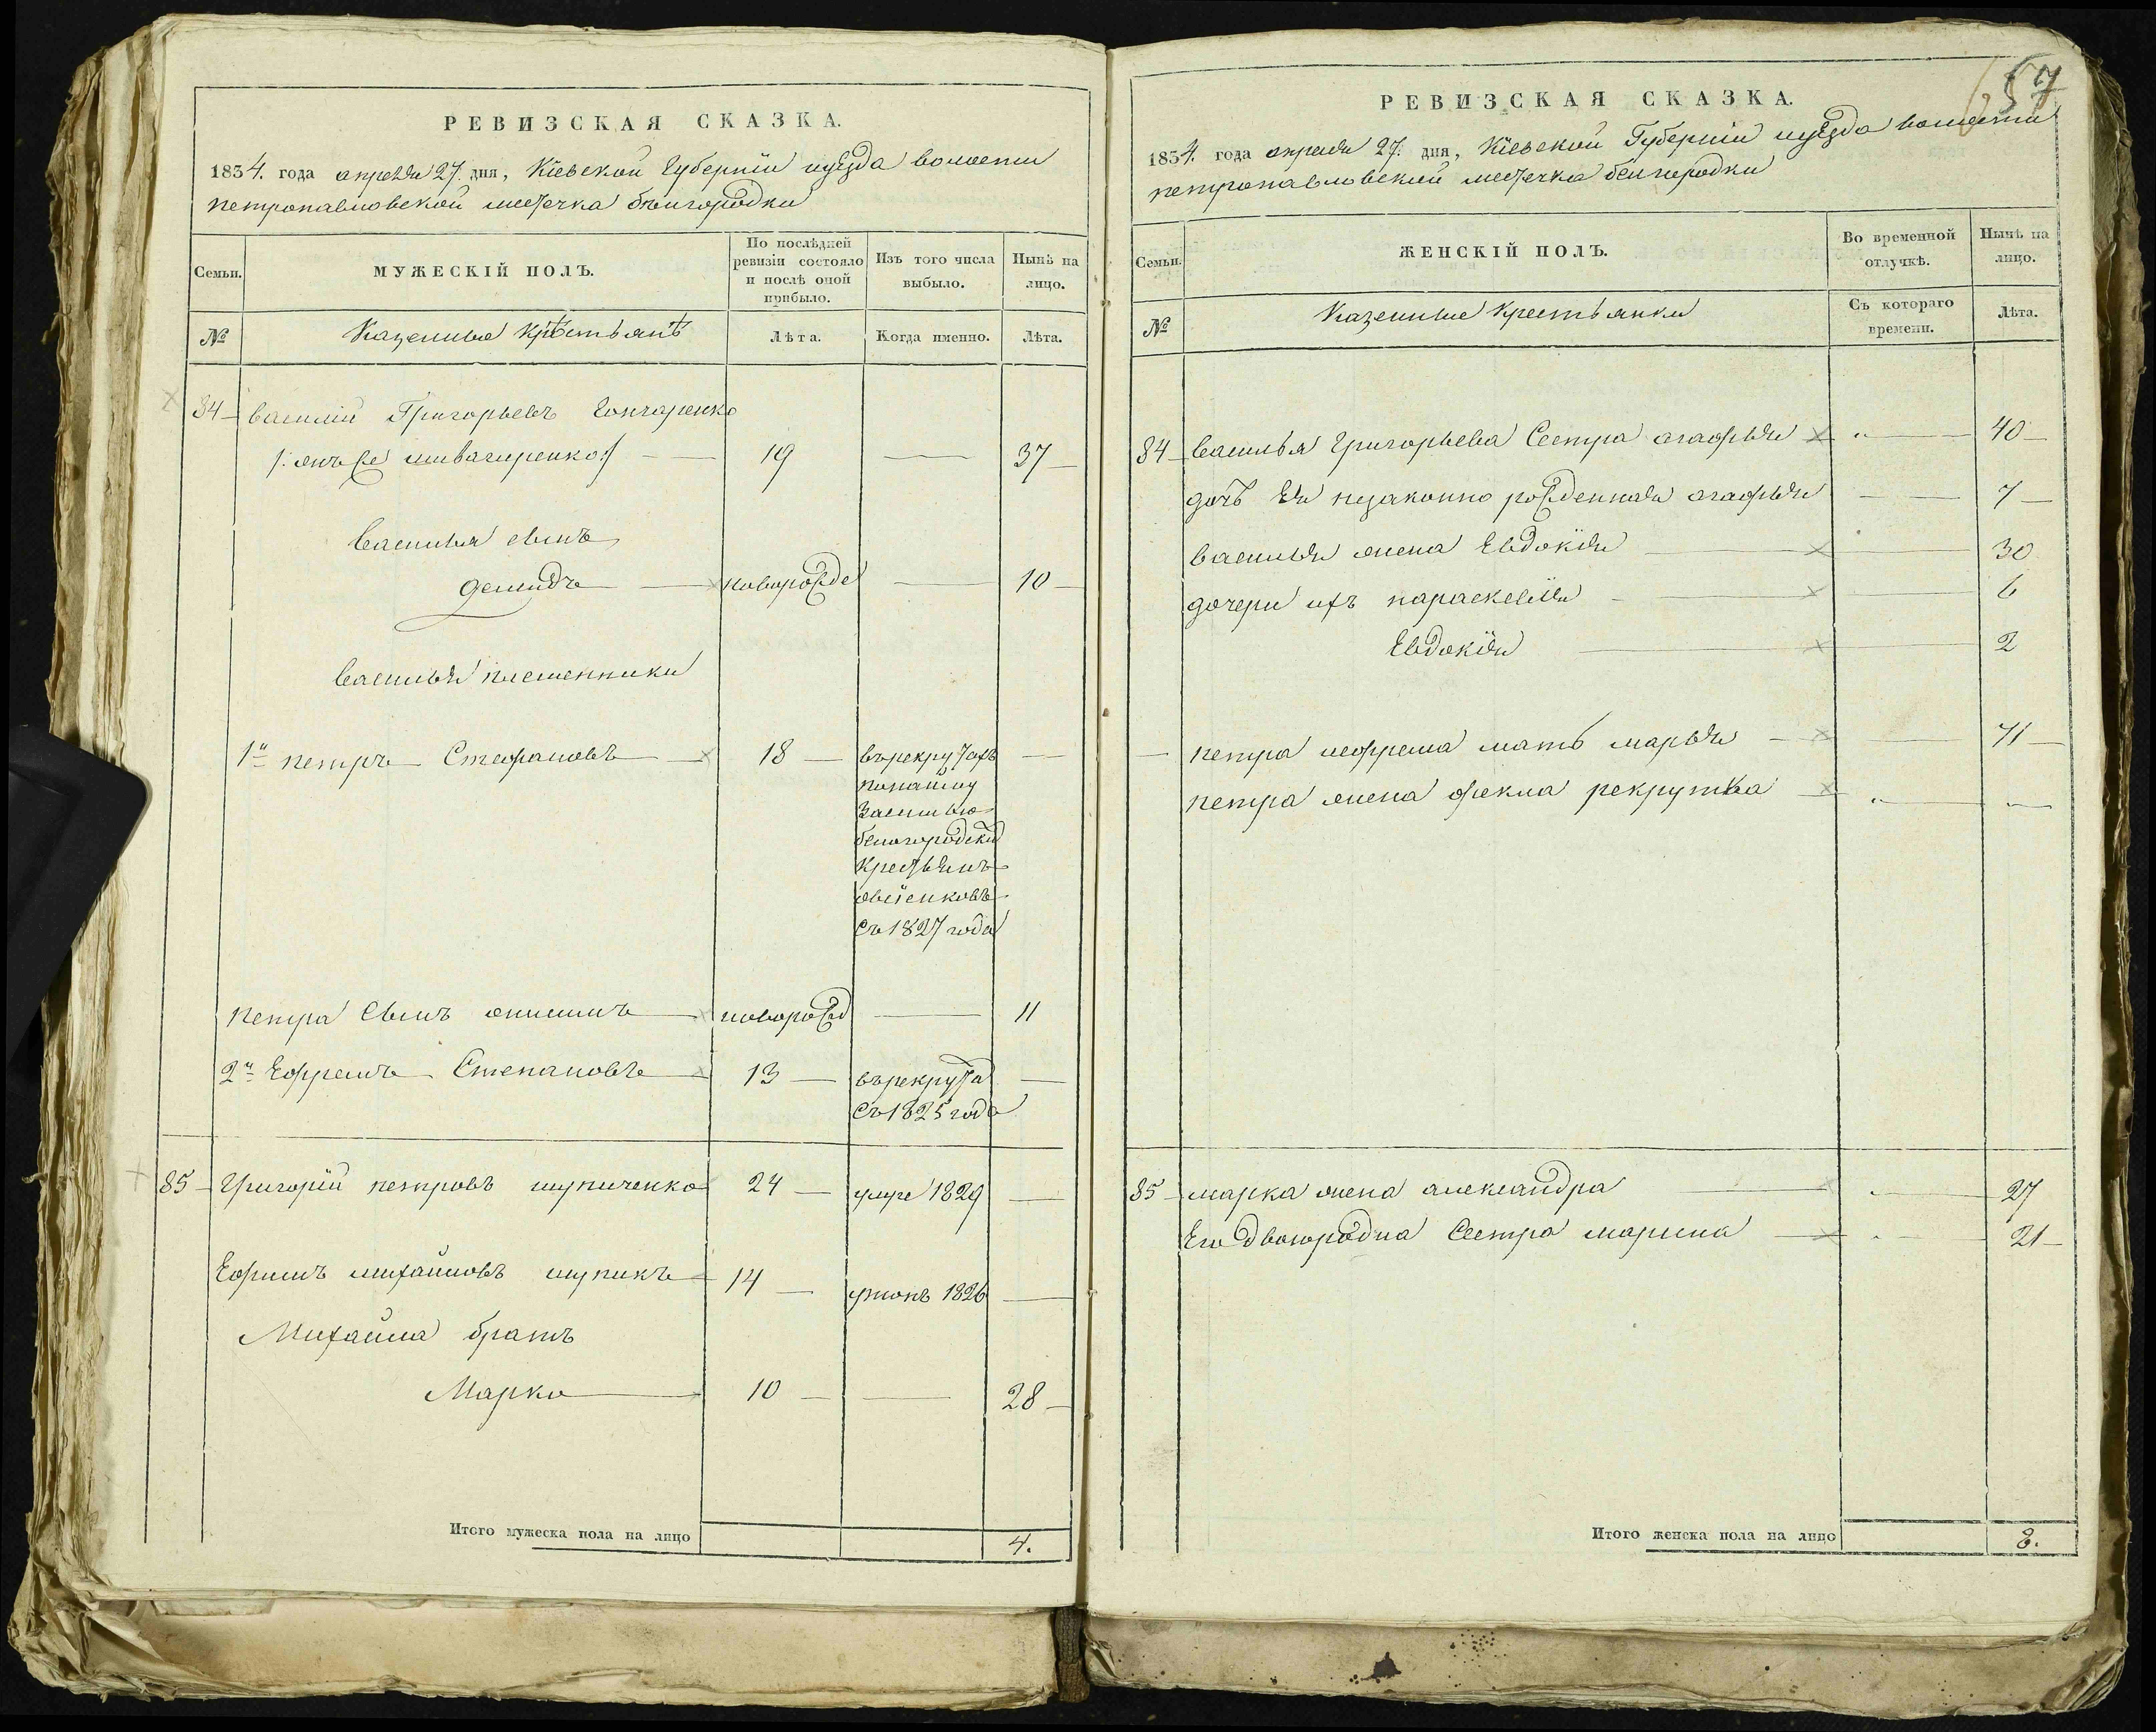 РЕВИЗСКАЯ СКАЗКА.
1834. года апреля 27. дня, Кіевской Губерніи уѣзда волости
петропавловской местечка бѣлгородки
Семьи.
МУЖЕСКІЙ ПОЛЪ.
По послѣдней ревизіи состояло и послѣ оной прибыло.
Изъ того числа выбыло.
Нынѣ на лицо.
№
Казенные Крестьянѣ
Лѣта.
Когда именно.
Лѣта.
84 Василій Григорьевъ Гончаренко
онъ же 19 — 37
Василья сынъ
демидъ — новорожде — 10
Василья племенники
1й петръ Стефановъ — 18 — въ рекрутахъ —
бѣлогородски
Крестьянъ
съ 1827 года
петра сынъ онисимъ новорожд — 11
2й Ефремъ Степановъ 13 — въ рекрута —
съ 1825 года
85 Григорій петровъ шупиченко 24 — умре 1829 —
Ефимъ михайловъ шупикъ 14 — 1826 —
Михайла братъ
Марко 10 — — 28
Итого мужеска пола на лицо 4.
57
РЕВИЗСКАЯ СКАЗКА.
1834. года апреля 27. дня, Кіевской Губерніи уѣзда волости
петропавловской местечка белгородки
Семьи.
ЖЕНСКІЙ ПОЛЪ.
Во временной отлучкѣ.
Нынѣ на лицо.
№
Казенные Крестьянки
Съ котораго времени.
Лѣта.
84 Василья Григорьева Сестра агафья „ — 40
дочь Ея незаконно рожденная агафья — 7
Василья жена Евдокія — 30
дочери ихъ параскевія — 6
Евдокія — 2
— петра иефрема мать марья — 71
петра жена фекла рекрутка „ — „
85 марка жена александра — 27
Его двоюродна Сестра марина — 21
Итого женска пола на лицо 8.